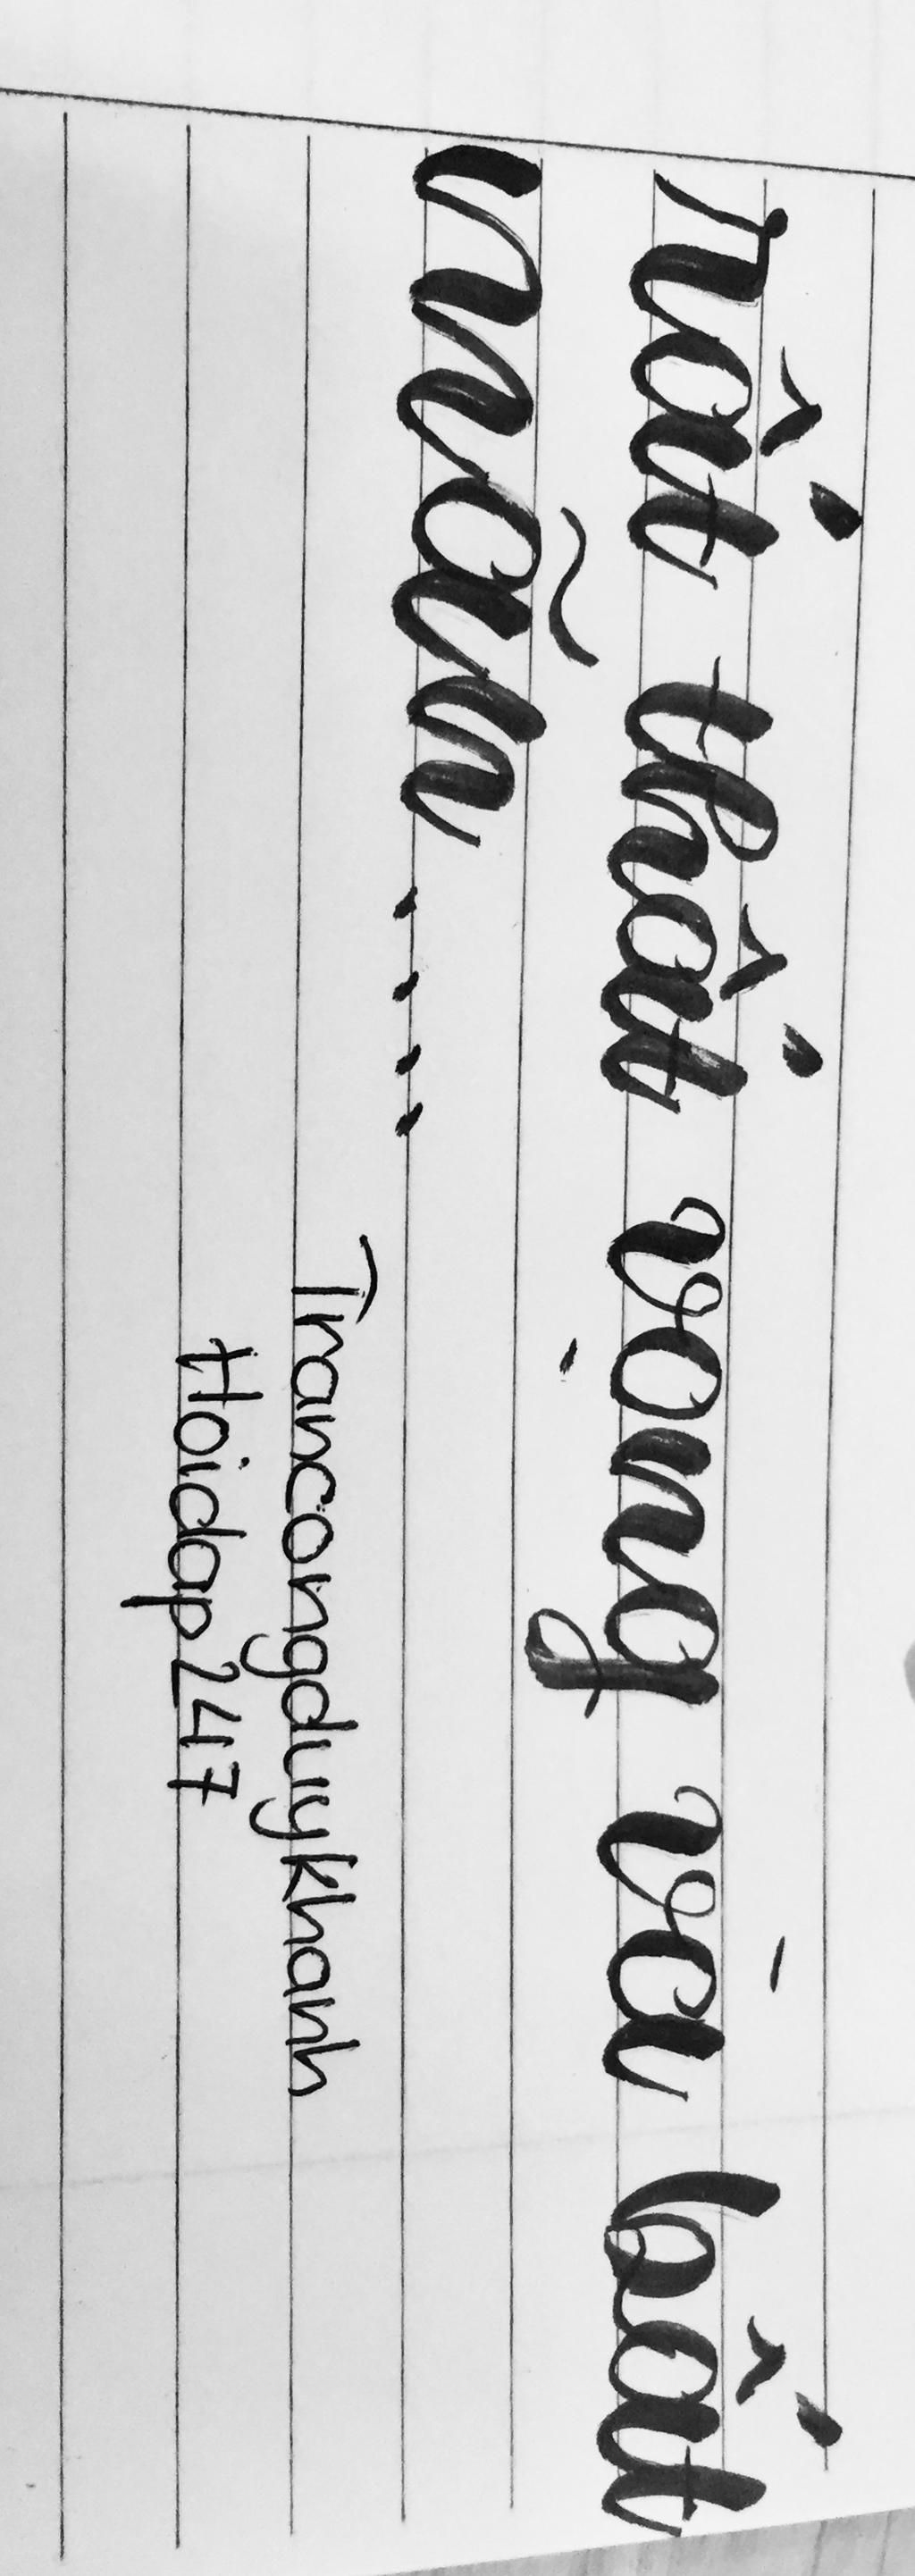 rất thất vọng và bất
mãn....
Trancongduykhanh
Hoidap247